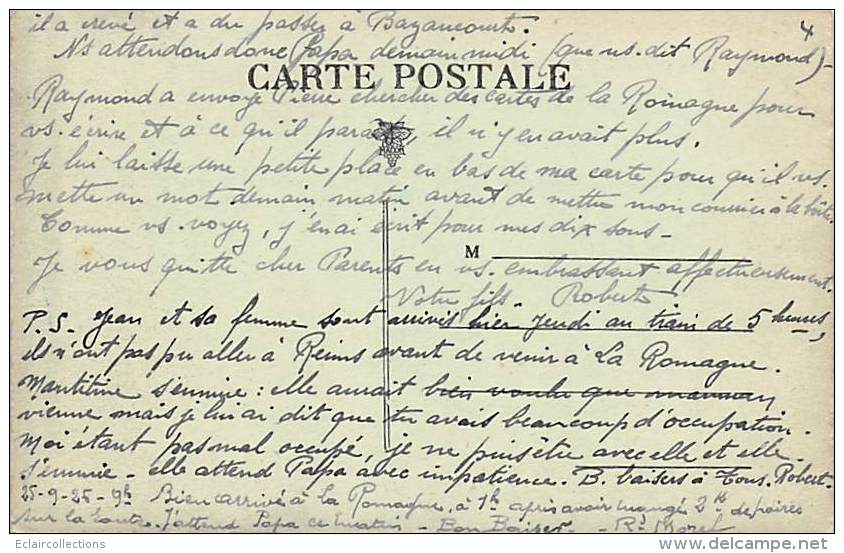 il a crevé et a du passer à Bazancourt. 4
Ns attendons donc Papa demain midi (que ns. dit Raymond)-
CARTE POSTALE
Raymond a envoyé Pierre chercher des cartes de la Romagne pour
vs. écrire et à ce qu'il parait, il n'y en avait plus.
MACON
Je lui laisse une petite place en bas de ma carte pour qu'il vs.
mette un mot demain matin avant de mettre mon courrier à la boîte.
Comme vs. voyez, j'en ai écrit pour mes dix sous-
M
Je vous quitte cher Parents en vs. embrassant affectueusement.
Votre fils- Robert
P.S. Jean et sa femme sont arrivés hier Jeudi au train de 5 heures,
ils n'ont pas pu aller à Reims avant de venir à La Romagne.
s'ennuie : elle aurait bien voulu que maman
vienne mais je lui ai dit que tu avais beaucoup d'occupation.
Moi étant pas mal occupé, je ne puis être avec elle et elle
s'ennuie- elle attend Papa avec impatience. B. baisers à Tous. Robert.
25-9-25-9h Bien arrivé à la Romagne, à 1h après avoir mangé 2k de poires
sur la route. J'attend Papa ce matin- Bon Baiser-
Eclaircollections
www.delcampe.net